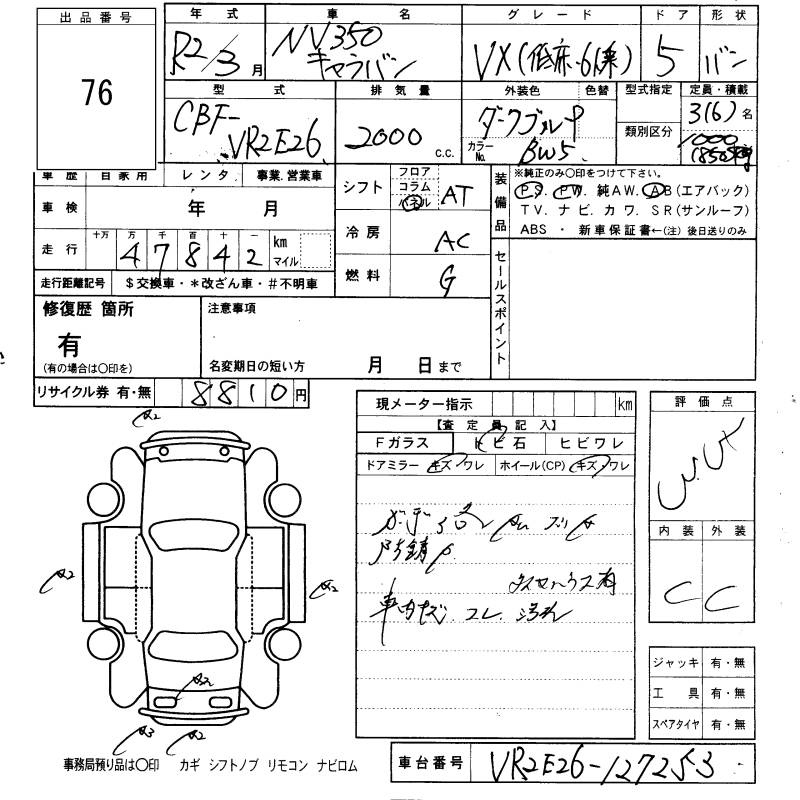 出品番号 76
年式 R2/3月
車名 NV350 キャラバン
グレード VX(低床・6人乗)
ドア 5
形状 バン
型式 CBF-VR2E26
排気量 2000 c.c.
外装色 ダークブルーP 色替
カラーNo. BW5
型式指定
類別区分
定員・積載 3(6)名
1000(850)kg
車歴 自家用 レンタ 事業.営業車
車検 年 月
走行 十万 万 千 百 十 一 km マイル
4 7 8 4 2
走行距離記号 $交換車・*改ざん車・#不明車
シフト フロア コラム パネル AT
冷房 AC
燃料 G
装備品 ※純正のみ○印をつけて下さい。
P S. P W. 純A W. A B(エアバック)
T V. ナビ. カワ. S R(サンルーフ)
ABS ・ 新車保証書←(注) 後日送りのみ
セールスポイント
修復歴 箇所
有
(有の場合は○印を)
注意事項
名変期日の短い方 月 日まで
リサイクル券 有・無 8810円
現メーター指示 km
【査定員記入】
Fガラス トビ石 ヒビワレ
ドアミラー キズ・ワレ ホイール(CP) キズ・ワレ
評価点
内装 外装
C C
車内キズ. コレ. 汚れ
ジャッキ 有・無
工具 有・無
スペアタイヤ 有・無
事務局預り品は○印 カギ シフトノブ リモコン ナビロム
車台番号 VR2E26-127253